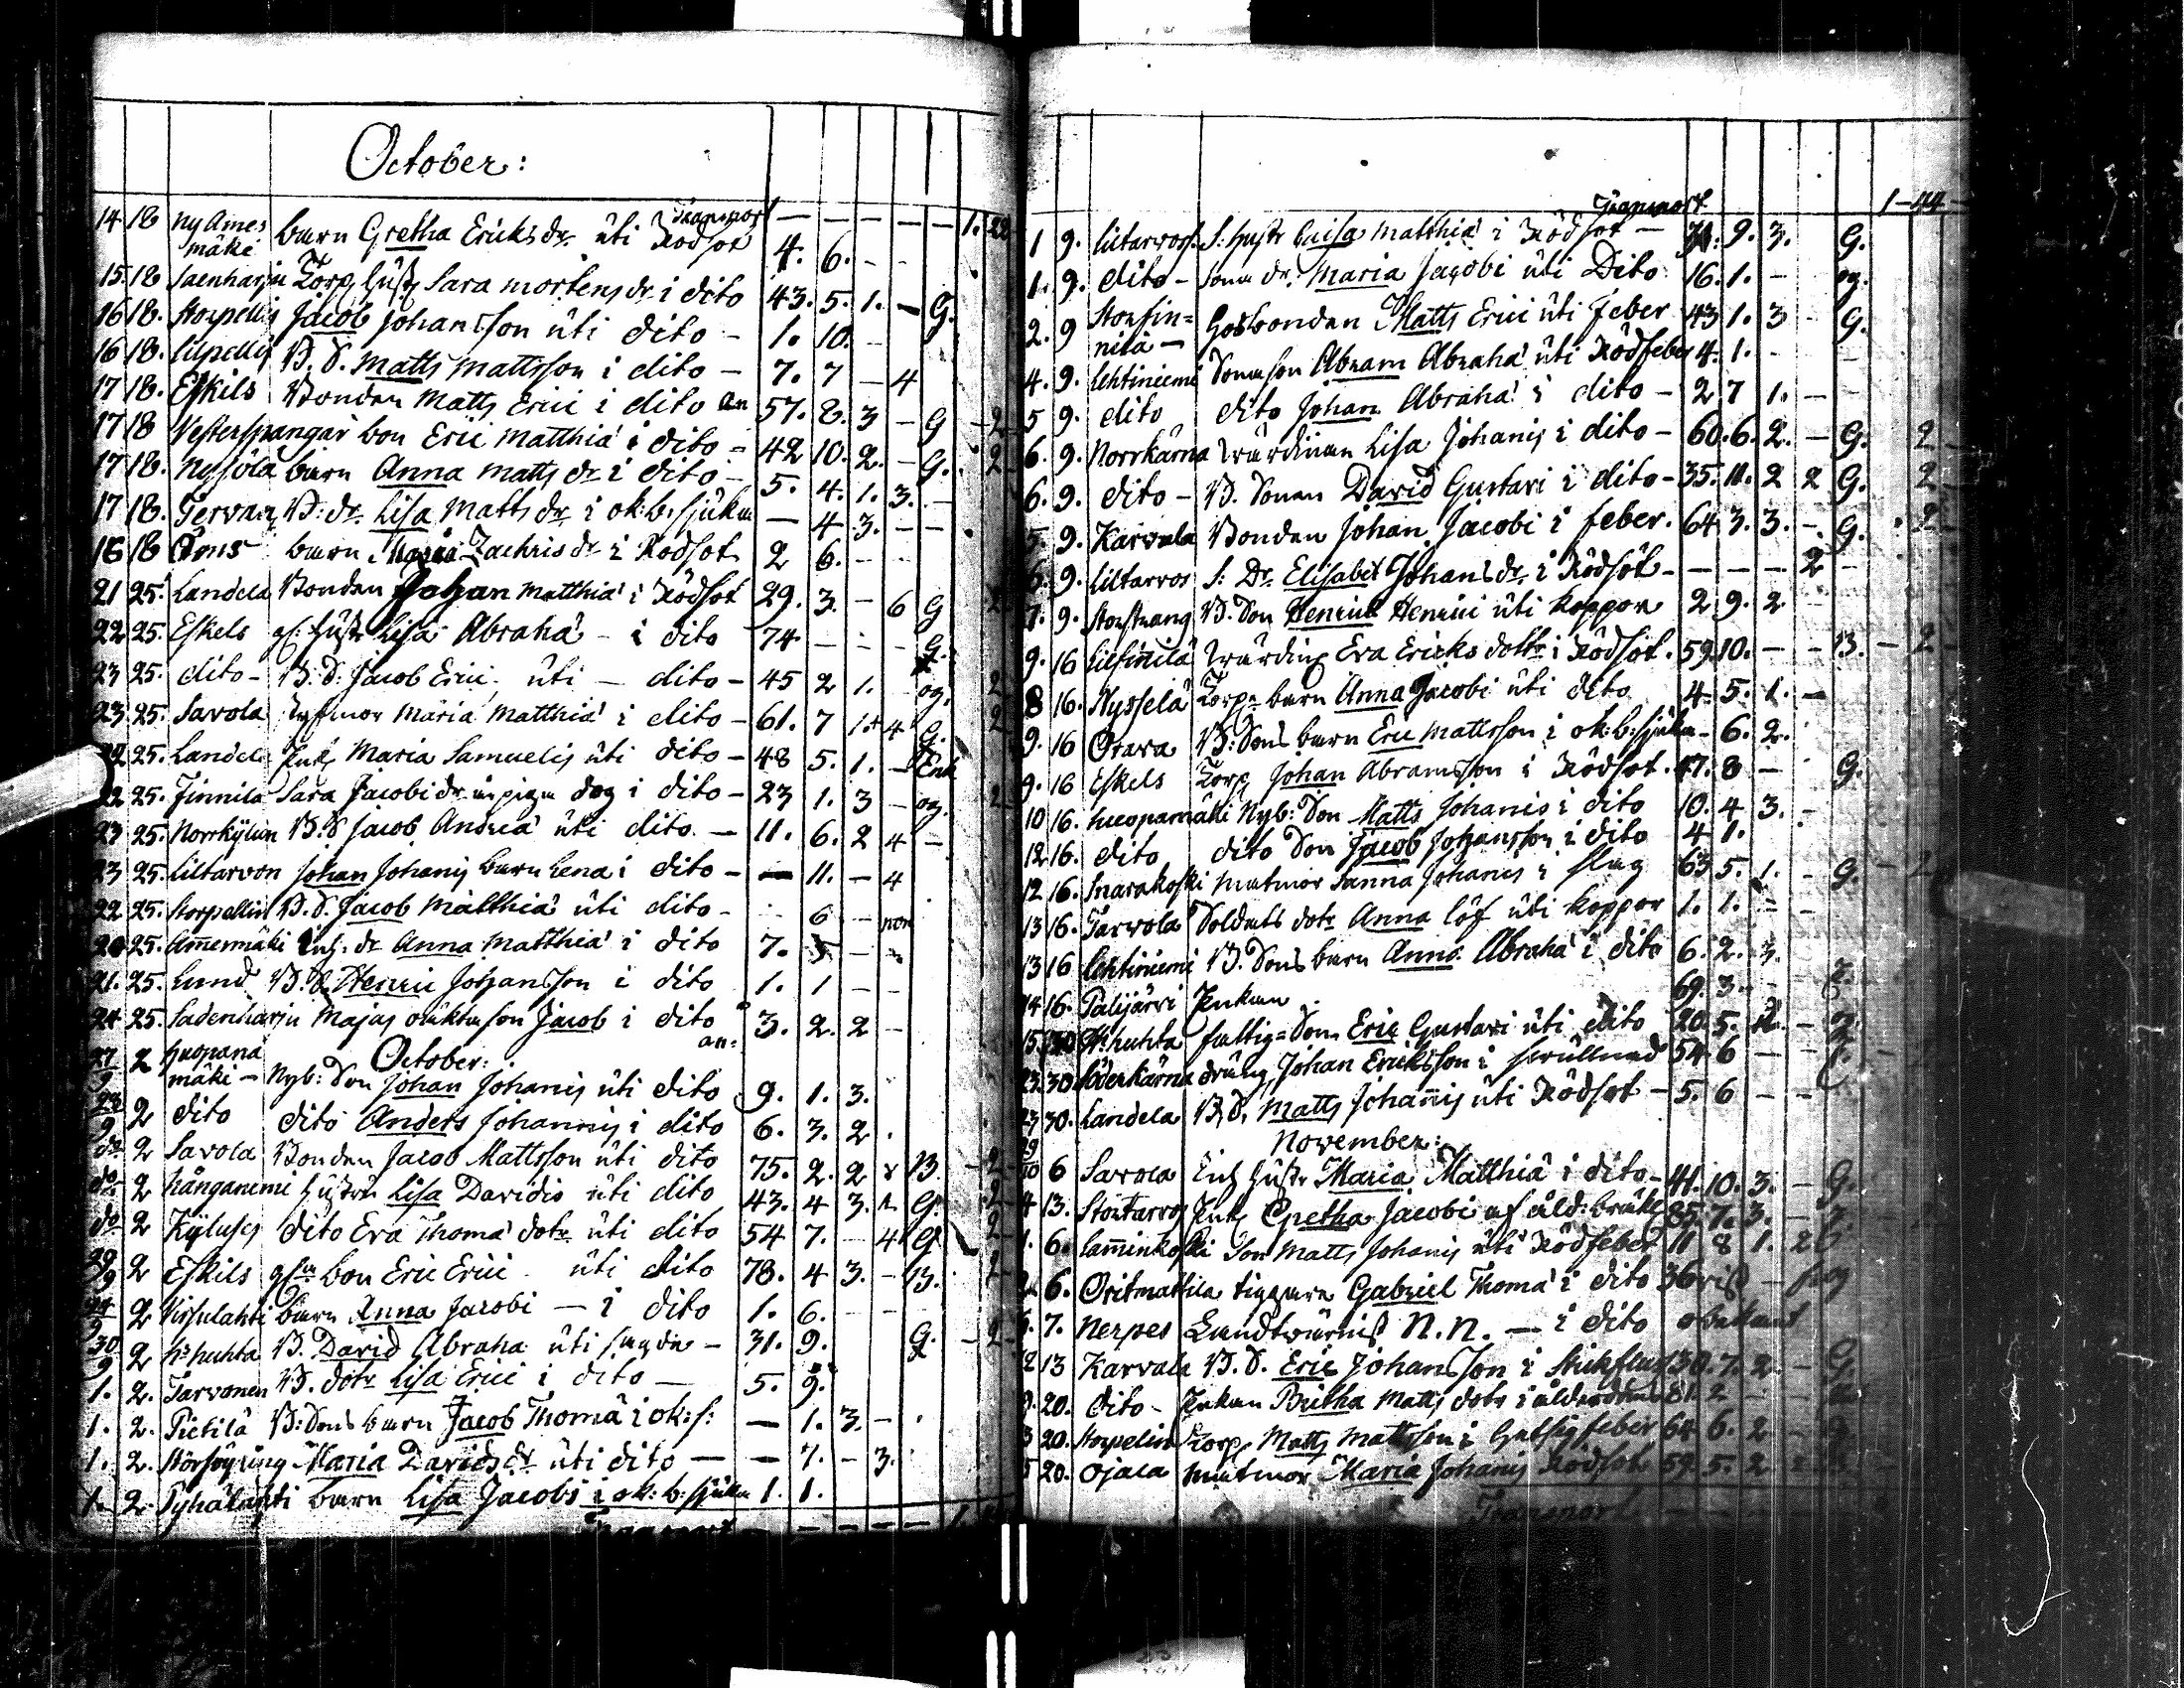 October:
Transport — — — — — 1. 22
14 18 Ny Ames mäki barn Gretha Ericks dr. uti Rödsot 4. 6. — —
15. 18 Saenharju Torp. hust. Sara Mortens dr i dito 43. 5. 1. — G.
16 18. Storpellis Jacob Johansson uti dito — 1. 10. —
16 18. Lilpellis B. S. Matts Mattsson i dito — 7. 7 — 4
17 18. Eskils Bonden Matts Erici i dito 57. 8. 3 — G — 2
17 18 Vesterspangar bon Eric Matthiæ i dito — 42 10. 2. — G. 2
17 18. Nysöla barn Anna Matts dr i dito — 5. 4. 1. 3. —
17 18. Gervan B: dr. Lisa Matts dr i ok: b. sjukd — 4 3. — —
16 18 Öms barn Maria Zachris dr i Rödsot 2 6. — —
21 25. Landela Bonden Johan Matthiæ i Rödsot 29. 3. — 6 G 2
22 25. Eskels gl: hustr Lisa Abrahæ — i dito 74 — — — G.
23 25. dito — B. S: Jacob Erici uti — dito — 45 2 1. — og. 2
23 25. Savola Maria Matthiæ i dito — 61. 7 1. 4 G. 2
22 25. Landela Enk. Maria Samuelis uti dito — 48 5. 1. — Enk
22 25. Finnila Sara Jacobi dr en piga dog i dito — 23 1. 3 — og. 2
23 25. Norrkylän B. S Jacob Andreæ uti dito. — 11. 6. 2 4 —
23 25. Liltarvon Johan Johanis barn Lena i dito — — 11. — 4
22 25. Storpellin B. S. Jacob Matthiæ uti dito — 6 —
20 25. Ammermäki Inh. dr Anna Matthiæ i dito 7. 5 — —
21. 25. Lund B. S. Henric Johansson i dito 1. 1 — —
24 25. Sadenharju Majas oäkta son Jacob i dito 3. 2. 2 —
October:
27/9 2 Huopana mäki — Nyb: Son Johan Johanis uti dito 9. 1. 3.
28/9 2 dito dito Anders Johannis i dito 6. 3. 2 .
do 2 Savola Bonden Jacob Mattsson uti dito 75. 2. 2 B. — 2
do 2 Hånganemi Hustru Lisa Davidis uti dito 43. 4 3. G. 2
do 2 Kyluses dito Eva Thomæ dotr uti dito 54 7. — 4 G 2
29/9 2 Eskils bon Eric Erici uti dito 78. 4 3. — B. 2
29/9 2 Virsulahti barn Anna Jacobi — i dito 1. 6. — —
30/9 2 huhta B. David Abraha uti sagde — 31. 9. G. — 2
1. 2. Tarvonen B. dotr Lisa Erici i dito — 5. 9.
1. 2. Pietilä B: Sons barn Jacob Thomæ i ok: s: — 1. 3. — .
1. 2. Maria Davids dr uti dito — — 7. — 3.
1. 2. Pyhälahti barn Lisa Jacobs i ok: b: sjukd 1. 1.
Transport — — — — 1
Transport 1 — 44
1 9. Liltarvos S. Hustr Caisa Matthiæ i Rödsot — 9. 3. G.
1. 9. dito — Sona dr. Maria Jacobi uti Dito 16. 1. — og.
2. 9 Storfin= nila — Godbonden Matts Erici uti feber 43 1. 3 — G.
4. 9. Lehtiniemi Sonason Abram Abrahæ uti Rödfeber 4. 1. —
5 9. dito dito Johan Abrahæ i dito — 2 7 1. —
6. 9. Norrkärna Wärdinan Lisa Johanis i dito — 60. 6. 2. — G. 2
6. 9. dito — B. Sonen David Gustavi i dito — 35. 11. 2 2 G. 2
5. 9. Karvala Bonden Johan Jacobi i feber. 64 3. 3. — G. 2
6. 9. Liltarvos S: Dr. Elisabet Johans dr. i Rödsot — — — — 2 —
7. 9. Storstrang B. Son Henrick Henrici uti koppor 2 9. 2.
9. 16 Lilfinnila Wärdin Eva Ericks dottr i Rödsot. 59. 10. — — B. — 2
8 16. Nyssela Torp. barn Anna Jacobi uti dito 4. 5. 1. —
9. 16 Orava B: Sons barn Eric Mattsson i ok: b: sjukd — 6. 2.
9. 16 Eskels Torp. Johan Abramsson i Rödsot. 47. 8 — G.
10 16. Huopamäki Nyb: Son Matts Johanis i dito 10. 4 3. —
12 16. dito dito Son Jacob Johansson i dito 4 1.
12 16. Snarakoski Matmor Sanna Johanis i slag 63 5. 1. — G. — 2
13 16. Tarvola Soldats dotr Anna Löf uti koppor 1. 1. —
13 16 Lehtiniemi B. Sons barn Anna Abrahæ i dito 6. 2. 3.
14 16. Palijärvi Enkan 69. 3 —
15 30 huhta fattig= Son Eric Gustavi uti dito 20. 5.
23. 30. Söderkärna dräng. Johan Ericksson i 54 6 —
27 30. Landela B. S. Matts Johannis uti Rödsot — 5. 6 — —
November:
29/10 6 Savola Inh hustr Maria Matthiæ i dito — 41. 10. 3. — G.
4 13. Stortarvos Enk. Gretha Jacobi af åld: bräkl 85. 7. 3. —
1. 6. Samminkoski Son Matts Johanis uti Rödfeber 11 8 1. 2
6. Oritmattila tiggare Gabriel Thomæ i dito 36
7. Nerpes Landtvärnist N. N. — i dito obekant
12 13 Karvala B. S. Eric Johansson i 30. 7. 2. — G.
20. dito — Enkan Britha Matts dotr i 81. 2
20. Storpelin Torp. Matts Mattsson i feber 64 6. 2 —
20. Ojala Matmor Maria Johanis Rödsot 59. 5. 2
Transport